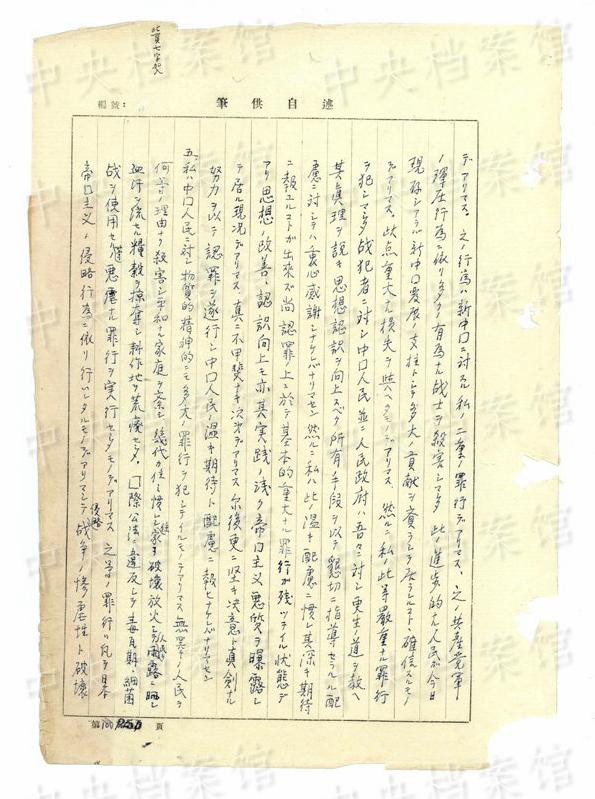 此頁七字改
編號:
筆供自述
デアリマス。之ノ行為ハ新中国ニ対スル私ノ二重ノ罪行デアリマス。之ノ共産党軍
ノ弾圧行為ニ依リ多クノ有為ナル战士ヲ殺害シマシタ 此ノ進歩的ナル人民が今日
現存シアラバ新中国発展ノ支柱トシテ多大ノ貢献ヲ齎ラシテ居ラレルト確信スルモノ
デアリマス。此点重大ナル損失ヲ與ヘタモノデアリマス、然ルニ私ノ此等嚴重ナル罪行
ヲ犯シマシタ战犯者ニ対シ中国人民並ニ人民政府ハ吾々ニ対シ更生ノ道ヲ教ヘ
其真理ヲ説キ思想認識ヲ向上スベク所有ノ手段ヲ以テ懇切ニ指導セラルル配
慮ニ対シテハ衷心感謝シナケレバナリマセン 然ルニ私ハ此ノ温キ配慮ニ慣レ其深キ期待
ニ報ユルコトが出来ズ尚認罪上ニ於テ基本的重大ナル罪行が残ツテイル状態デ
アリ思想ノ改善、認識向上モ亦其実践ノ浅ク帝国主義悪質ヲ曝露シ
テ居ル現況デアリマス 真ニ不甲斐ナキ次第デアリマス 尔後更ニ堅キ决意ト真剣ナル
努力ヲ以テ認罪ヲ遂行シ中国人民ノ温キ期待ト配慮ニ報ヒナケレバナリマセン
五、私ハ中国人民ニ対シ物質的精神的ニモ多大ノ罪行ヲ犯シテイルモノデアリマス 無辜ノ人民ヲ
何等ノ理由ナク殺害シ平和ナル家庭ヲ紊シ幾代カ住ミ慣レシ家ヲ破壊放火シ
血汗ヲ流セル糧穀ヲ掠奪シ耕作地ヲ荒廃セシメ、国際公法ニ違反シテ毒瓦斯、細菌
战ヲ使用セル等悪虐ナル罪行ヲ実行セシメタモノデアリマス 之等ノ罪行ハ凡テ日本
帝国主義ノ侵略行為ニ依リ行ハレタルモノデアリマシテ侵略战争ノ惨虐性ト破壊
第 頁
中央档案馆